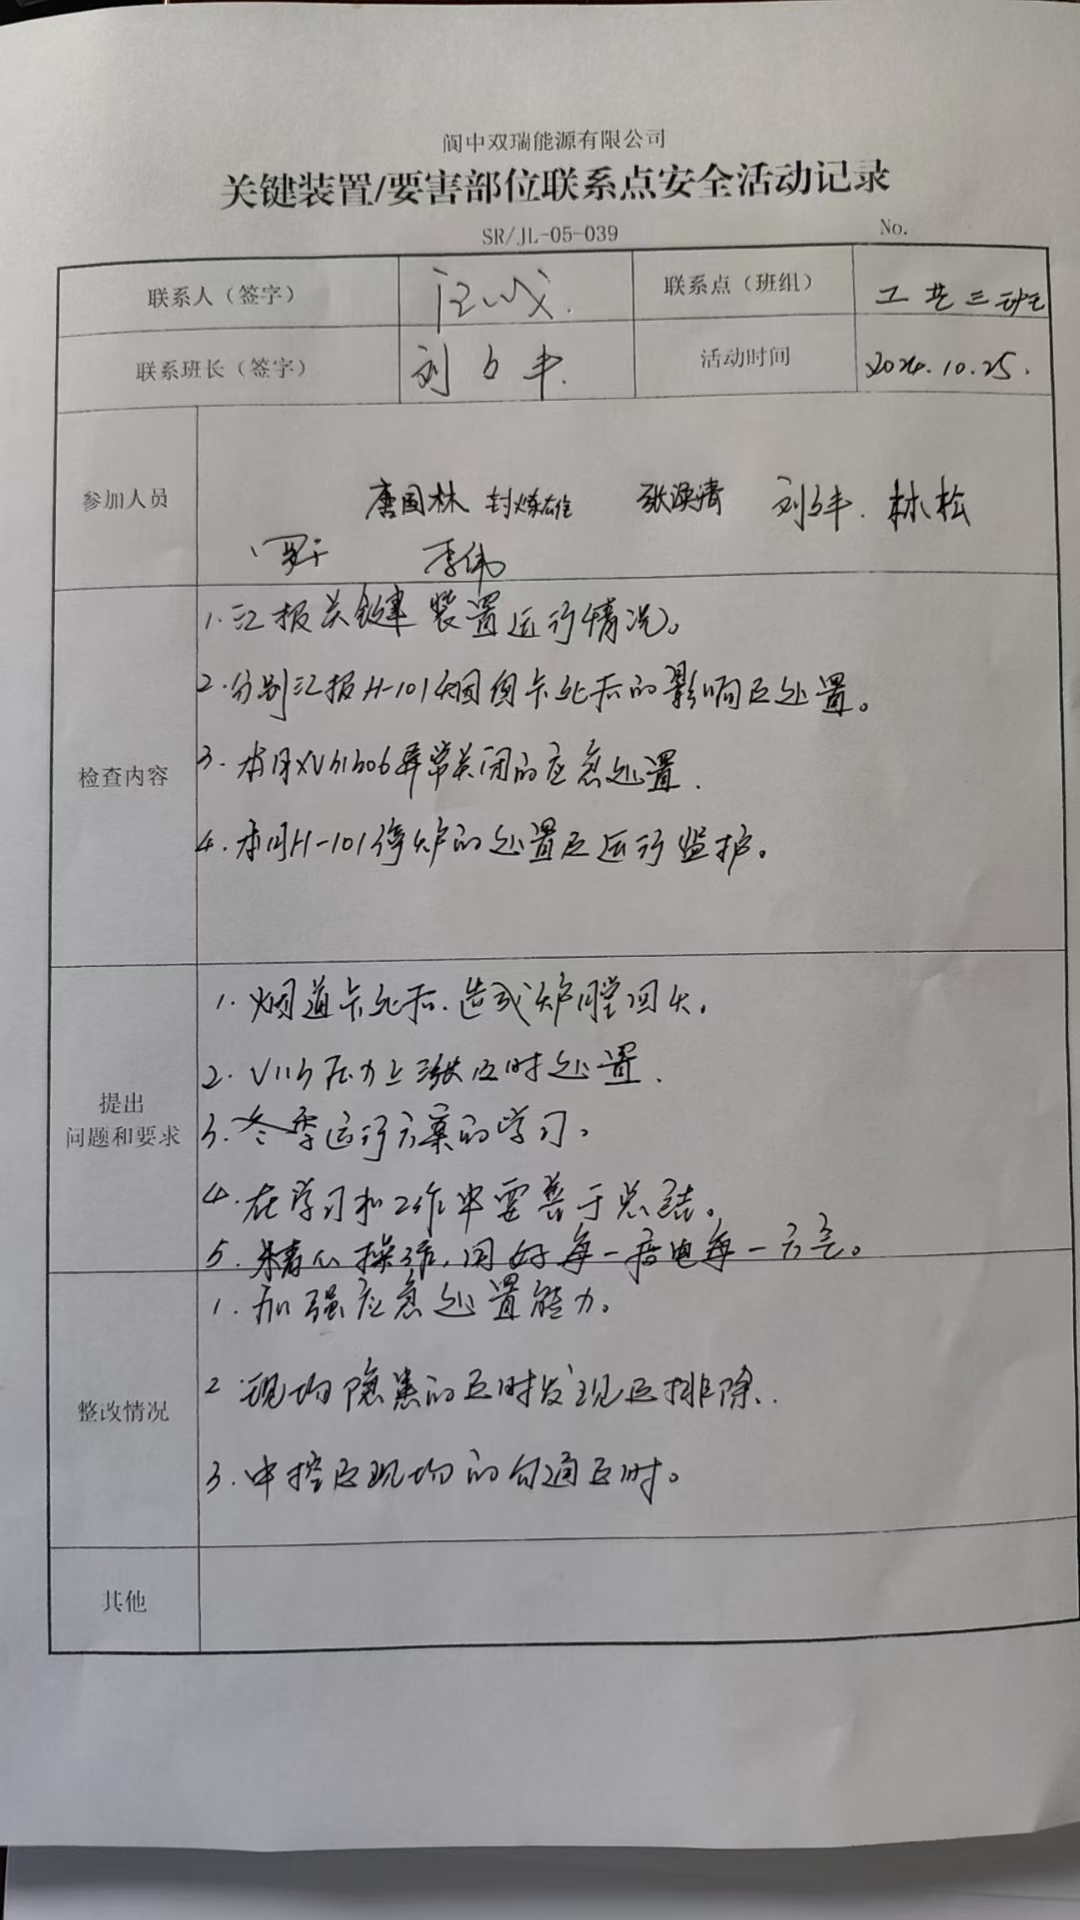 阆中双瑞能源有限公司
关键装置/要害部位联系点安全活动记录
SR/JL-05-039 No.
联系人（签字） 联系点（班组） 工艺三班
联系班长（签字） 刘 丰. 活动时间 2024.10.25.
参加人员 唐国林 封炼雄 张 清 刘 丰. 林松
罗于 李伟
检查内容
1.汇报关键装置运行情况。
2.分别汇报H-101烟囱卡死后的影响及处置。
3.本月XV31306异常关闭的应急处置.
4.本月H-101停炉的处置及运行监护。
提出
问题和要求
1.烟道卡死后.造成炉膛回火.
2. 压力上涨及时处置.
3.冬季运行方案的学习。
4.在学习和工作中要善于总结。
5.精心操作,用好每一度电每一方气。
整改情况
1.加强应急处置能力。
2 现场隐患的及时发现及排除..
3.中控及现场的勾通及时。
其他